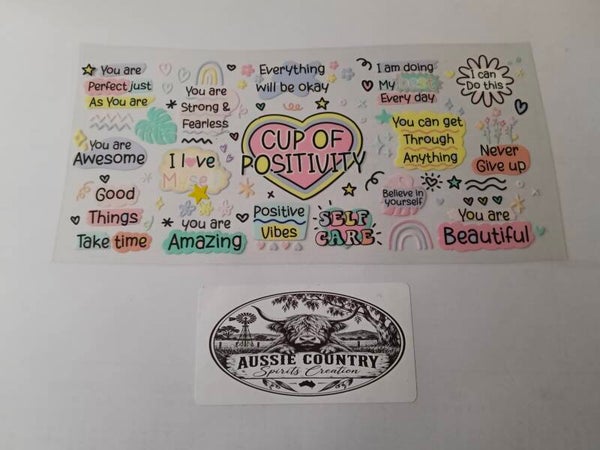 You are
Perfect just
As You are
You are
Strong &
Fearless
Everything
will be okay
I am doing
My
Every day
I can
Do this
You are
Awesome
I love
CUP OF
POSITIVITY
You can get
Through
Anything
Never
Give up
Good
Things
Take time
you are
Amazing
Positive
Vibes
SELF
CARE
Believe in
yourself
You are
Beautiful
AUSSIE COUNTRY
Spirits Creation